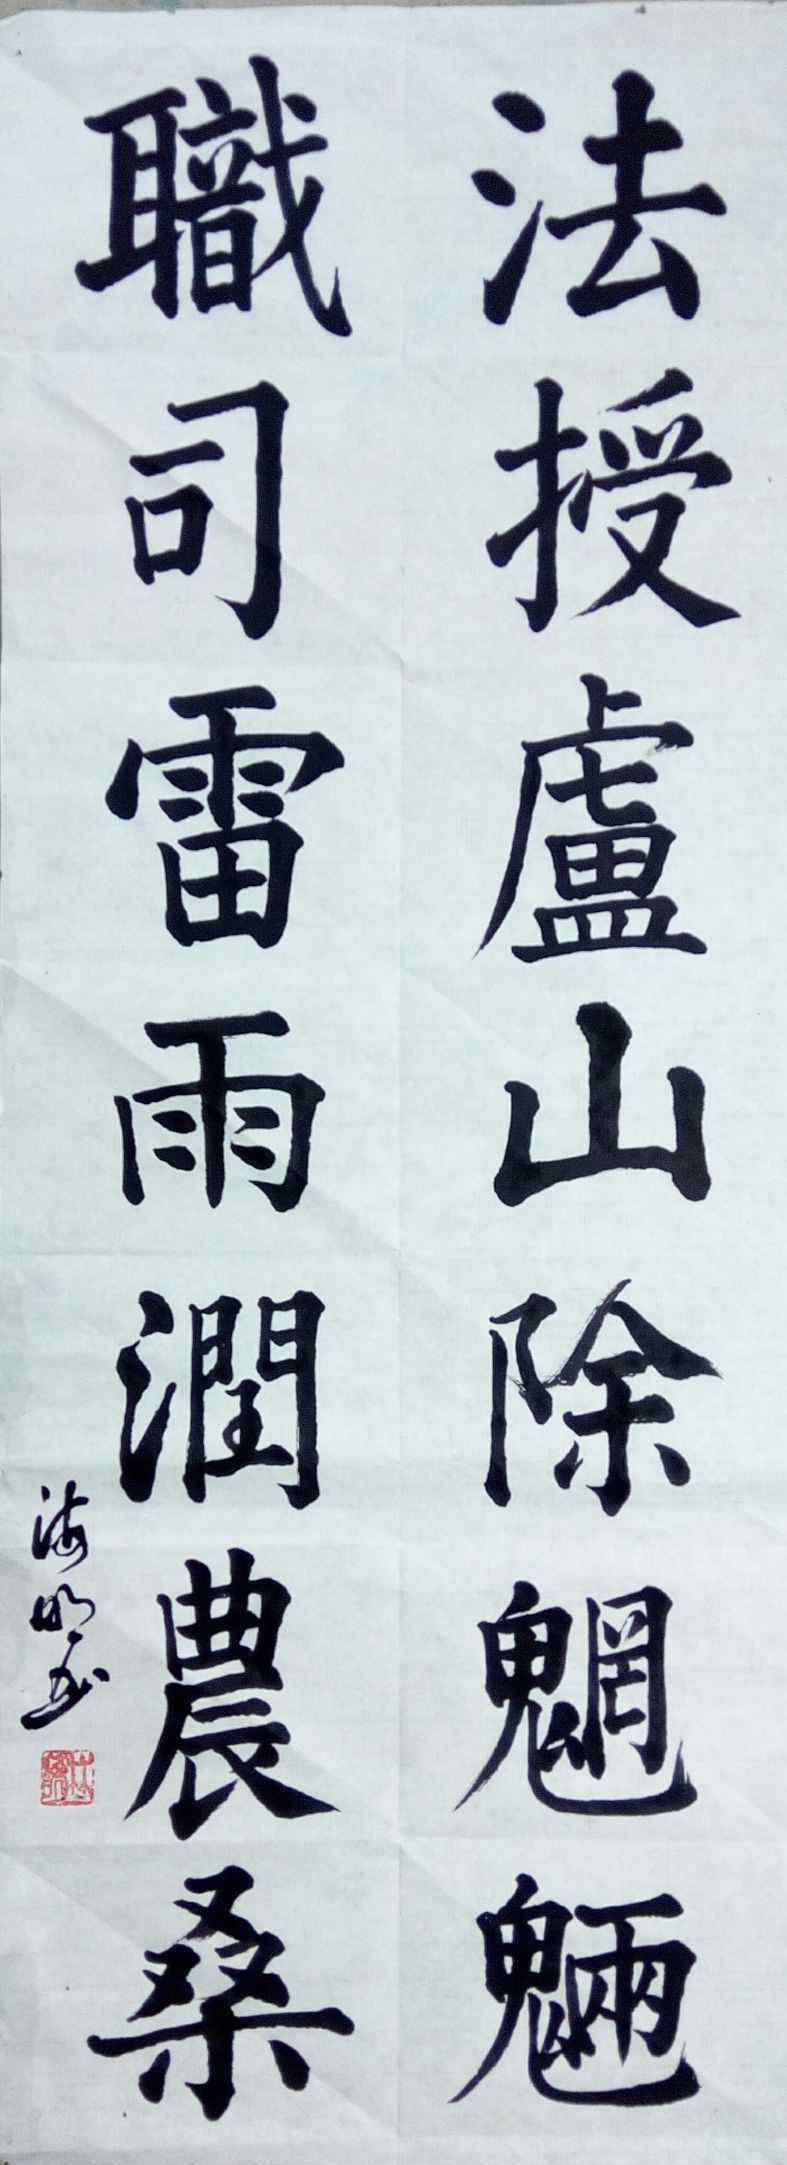 法授盧山除魍魎
職司雷雨潤農桑
海明書